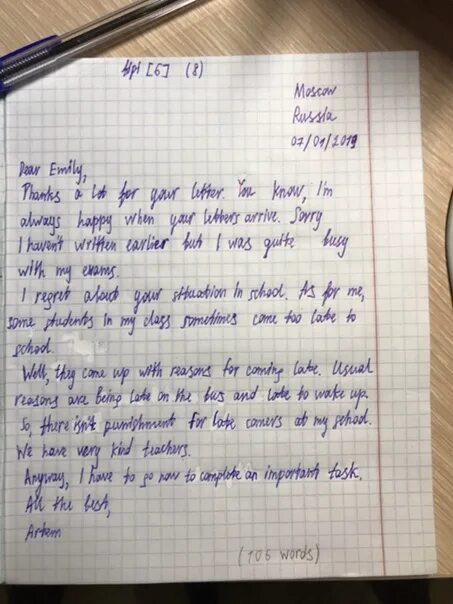 Upr [6] (8)
Moscow
Russia
07/01/2019
Dear Emily,
Thanks a lot for your letter. You know, I'm
always happy when your letters arrive. Sorry
I haven't written earlier but I was quite busy
with my exams.
I regret about your situation in school. As for me,
some students in my class sometimes come too late to
school.
Well, they come up with reasons for coming late. Usual
reasons are being late on the bus and late to wake up.
So, there isn't punishment for late comers at my school.
We have very kind teachers.
Anyway, I have to go now to complete an important task.
All the best,
Artem
(106 words)